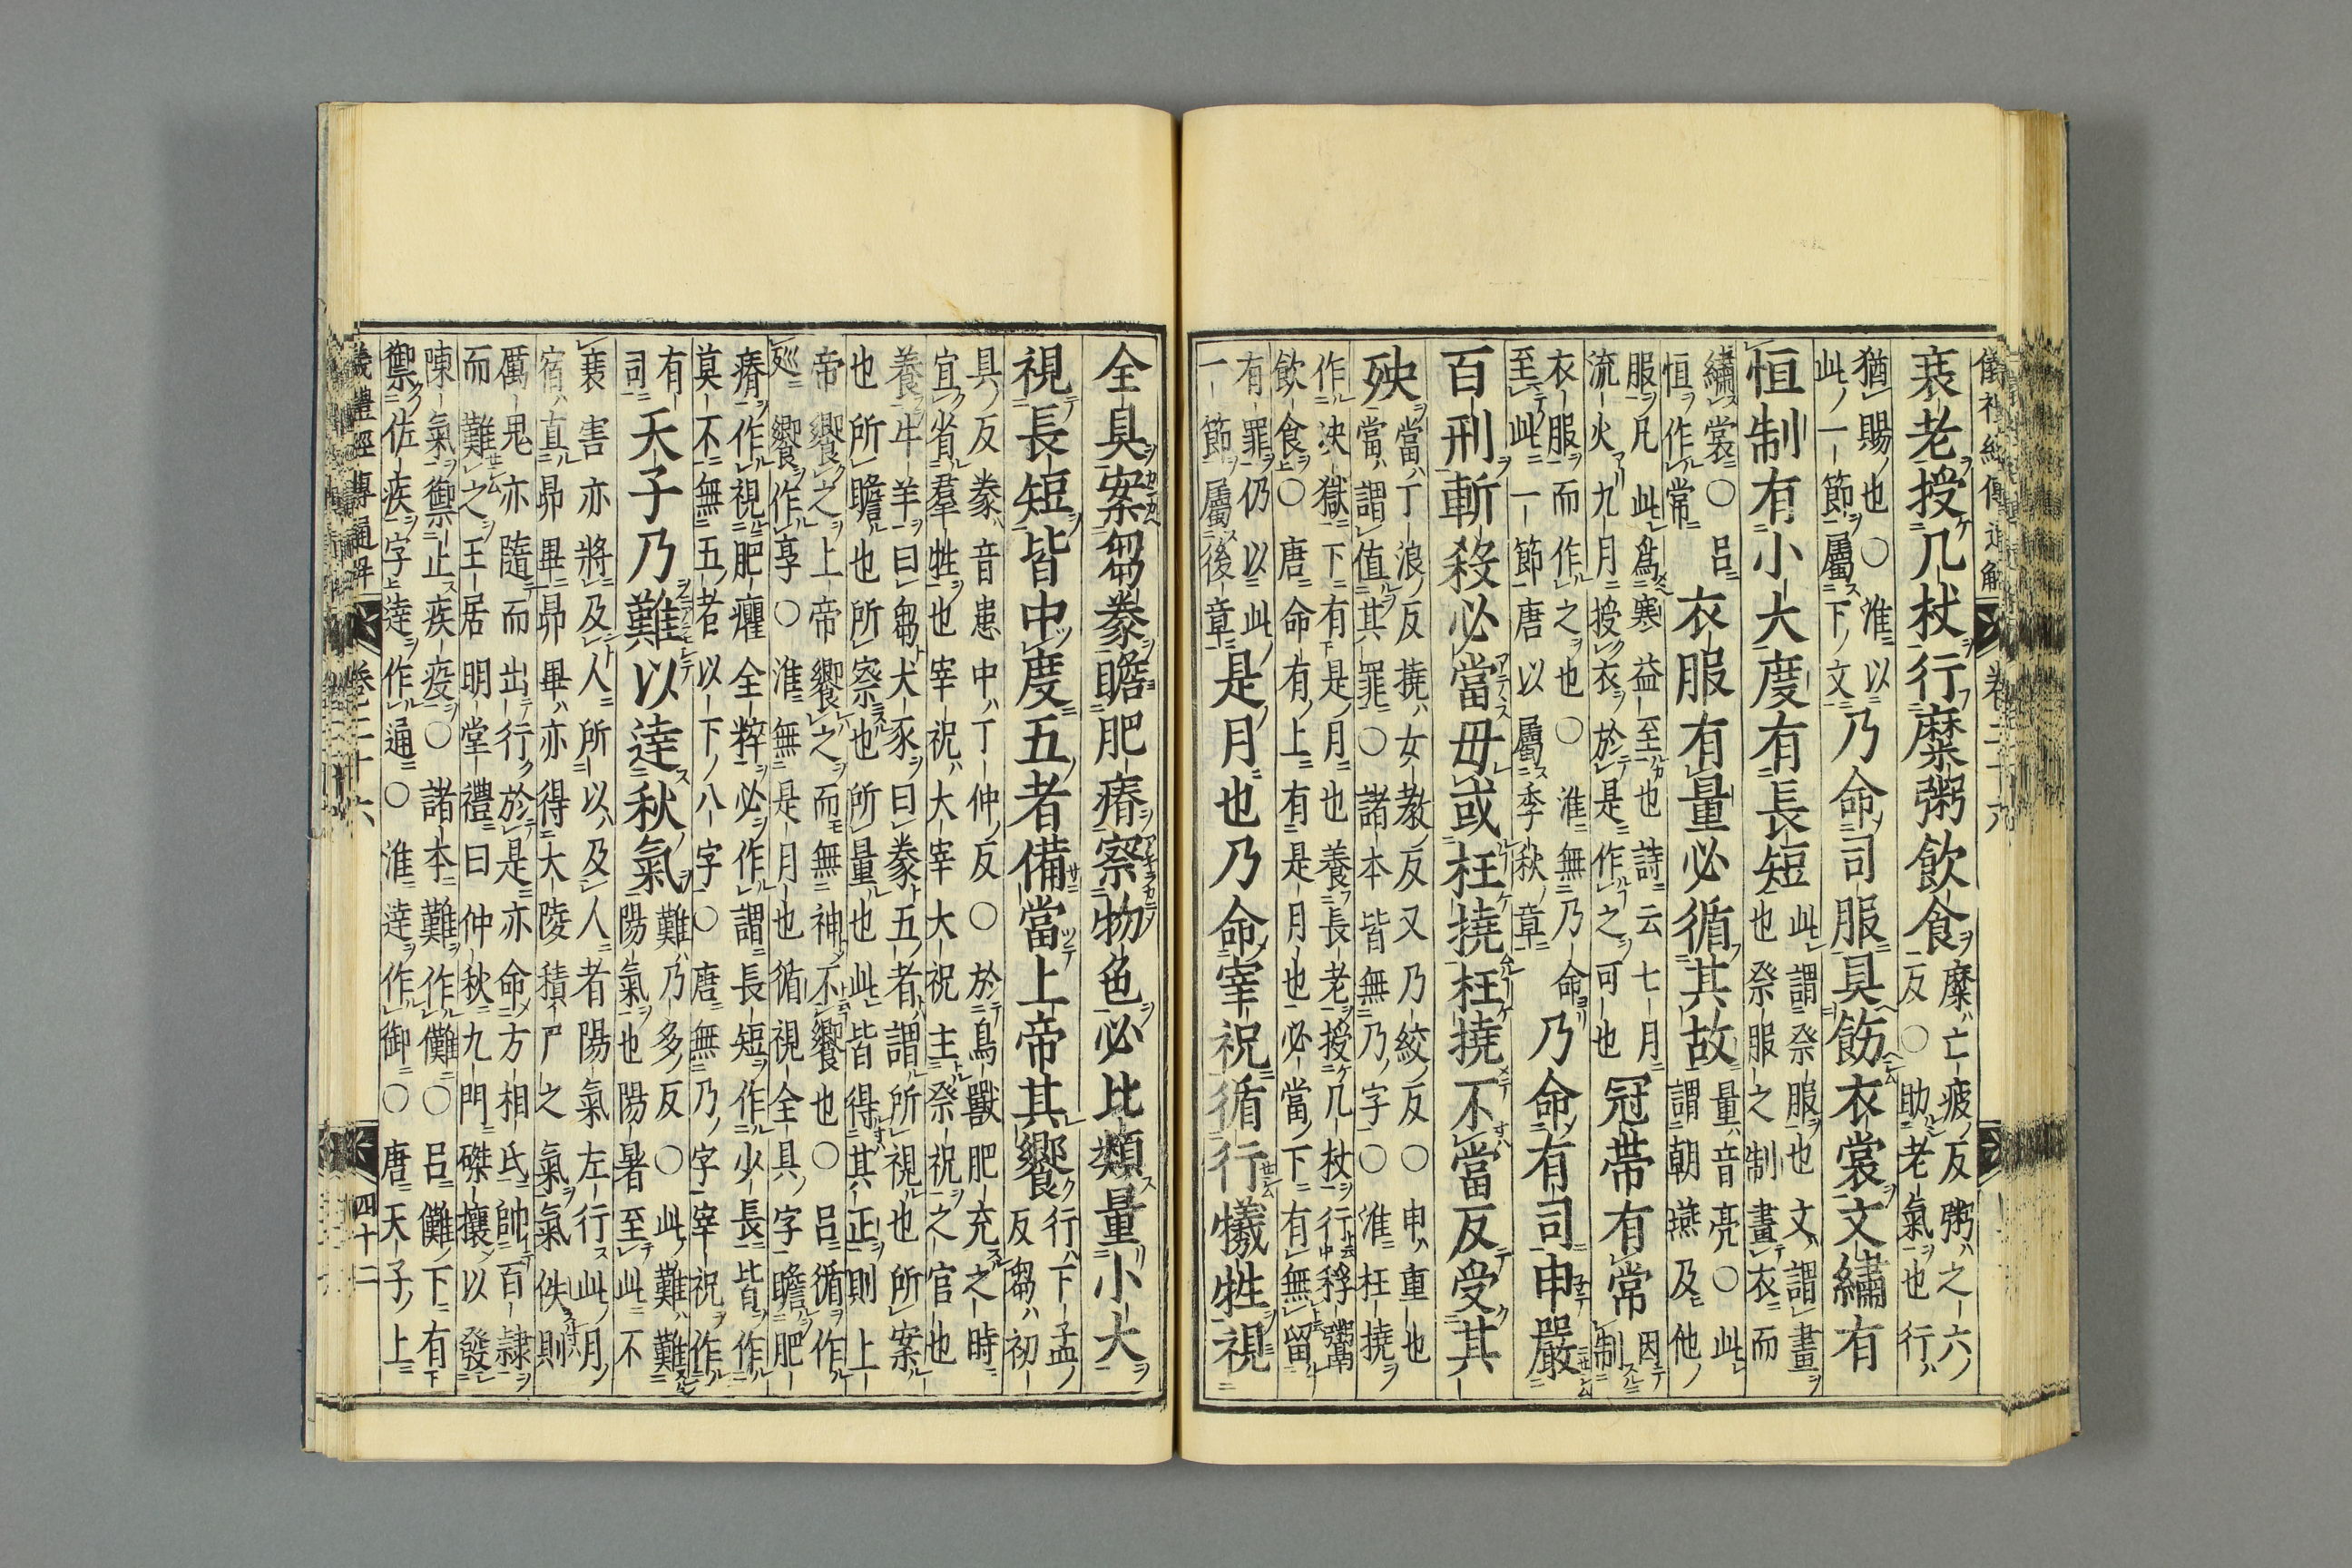 儀禮經傳通解 卷二十六
衰老授几杖行糜粥飲食 糜亡疲反粥之六 反○助老氣也行
猶賜也○淮以 此一節屬下文 乃命司服具飭衣裳文繡有
恒制有小大度有長短 此謂祭服也文謂畫 也祭服之制畫衣而
繡裳○呂 恒作常 衣服有量必循其故 量音亮○此 謂朝燕及他
服凡此爲寒益至也詩云七月 流火九月授衣於是作之可也 冠帶有常 因制
衣服而作之也○淮無乃命 至此一節唐以屬季秋章 乃命有司申嚴
百刑斬殺必當毋或枉撓枉撓不當反受其
殃 當丁浪反撓女教反又乃絞反○申重也 當謂值其罪○諸本皆無乃字○淮枉撓
作決獄下有是月也養長老授几杖行稃鬻 飲食○唐命有上有是月也必當下有無留
有罪仍以此 一節屬後章 是月也乃命宰祝循行犧牲視
全具案芻豢瞻肥瘠察物色必比類量小大
視長短皆中度五者備當上帝其饗 行下孟 反芻初
具反豢音患中丁仲反○於鳥獸肥充之時 宜省羣牲也宰祝大宰大祝主祭祝之官也
養牛羊曰芻犬豕曰豢五者謂所視也所案 也所瞻也所察也所量也此皆得其正則上
帝饗之上帝饗之而無神不饗也○呂循作 巡饗作享○淮無是月也循視全具字瞻肥
瘠作視肥臞全粹必作謂長短作少長皆作 莫不無五者以下八字○唐無乃字宰祝作
有司 天子乃難以達秋氣 難乃多反○此難難 陽氣也陽暑至此不
衰害亦將及人所以及人者陽氣左行此月 宿直昴畢昴畢亦得大陵積尸之氣氣佚則
厲鬼亦隨而出行於是亦命方相氏帥百隷 而難之王居明堂禮曰仲秋九門磔攘以發
陳氣禦止疾疫○諸本難作儺○呂儺下有 禦佐疾字達作通○淮達作御○唐天子上
儀禮經傳通解 卷二十六 四十二